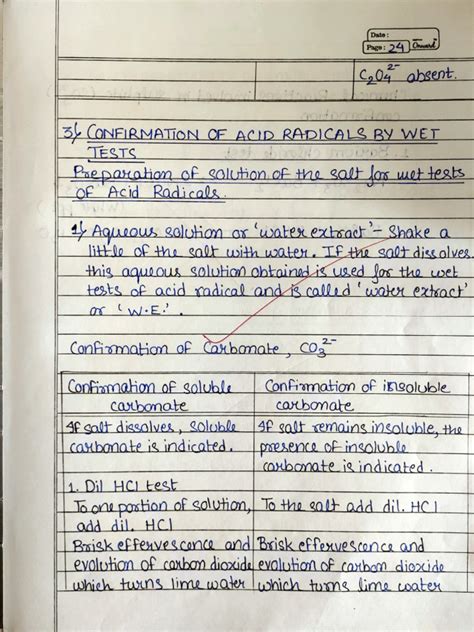 Date :
Page: 24
C₂O₄²⁻ absent.
3) CONFIRMATION OF ACID RADICALS BY WET
TESTS
Preparation of solution of the salt for wet tests
of Acid Radicals.
1) Aqueous solution or 'water extract' - Shake a
little of the salt with water. If the salt dissolves.
this aqueous solution obtained is used for the wet
tests of acid radical and is called 'water extract'
or 'W.E.'.
Confirmation of Carbonate, CO₃²⁻
Confirmation of soluble
carbonate
Confirmation of insoluble
carbonate
If salt dissolves, soluble
carbonate is indicated.
If salt remains insoluble, the
presence of insoluble
carbonate is indicated.
1. Dil HCl test
To one portion of solution,
add dil. HCl
To the salt add dil. HCl
Brisk effervescence and
evolution of carbon dioxide
which turns lime water
Brisk effervescence and
evolution of carbon dioxide
which turns lime water